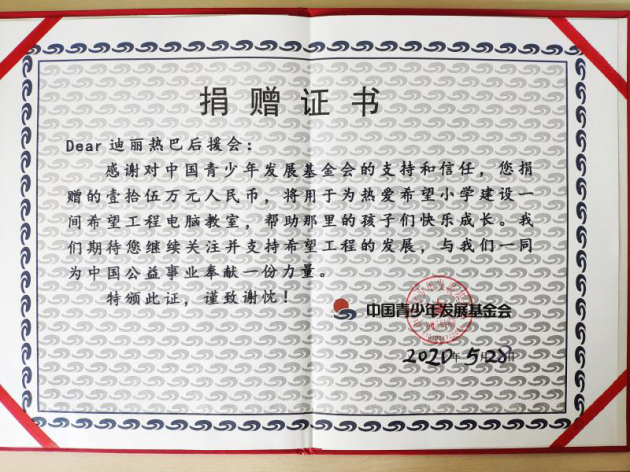 捐赠证书
Dear迪丽热巴后援会：
感谢对中国青少年发展基金会的支持和信任，您捐
赠的壹拾伍万元人民币，将用于为热爱希望小学建设一
间希望工程电脑教室，帮助那里的孩子们快乐成长。我
们期待您继续关注并支持希望工程的发展，与我们一同
为中国公益事业奉献一份力量。
特颁此证，谨致谢忱！
中国青少年发展基金会
2020年5月28日